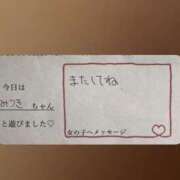 今日は
みづき ちゃん
と遊びました♡
またしてね
女の子へメッセージ